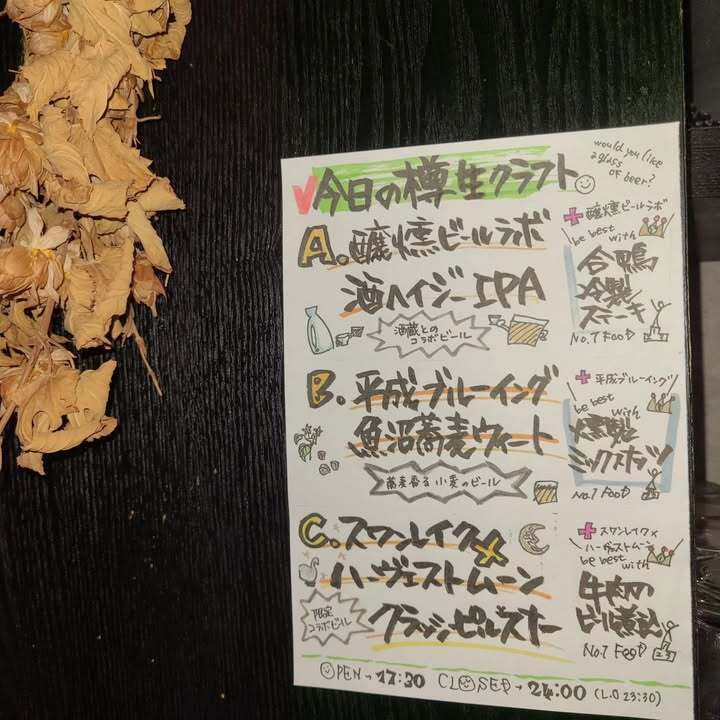 今日の樽生クラフト
would you like
a glass
of beer?
A. 醸燻ビールラボ
酒ヘイジーIPA
酒蔵との
コラボビール
+ 醸燻ビールラボ
be best with
合鴨
冷製
ステーキ
No.1 FOOD
B. 平成ブルーイング
魚沼蕎麦ウィート
蕎麦香る小麦のビール
+ 平成ブルーイング
be best with
燻製
ミックスナッツ
No.1 FOOD
C. スワンレイク×
ハーヴェストムーン
クラッシュピルスナー
限定
コラボビール
+ スワンレイク×
ハーヴェストムーン
be best with
牛肉の
ビール煮込
No.1 FOOD
OPEN→17:30 CLOSED→24:00 (L.O 23:30)